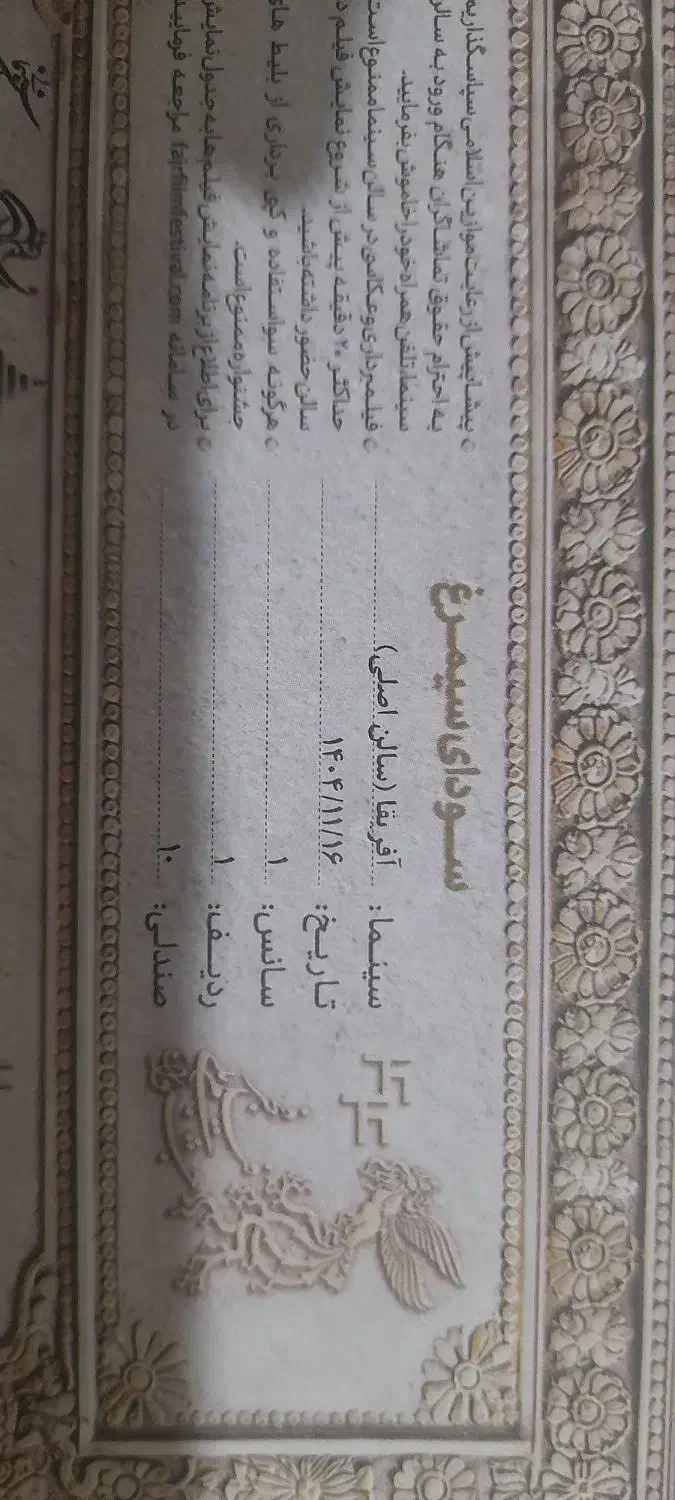 سودای سیمرغ
سینما: آفریقا (سالن اصلی)
تاریخ: ۱۴۰۴/۱۱/۱۶
سانس: ۱
ردیف: ۱
صندلی: ۱۰
پیشاپیش از رعایت موازین اسلامی سپاسگذاریم
به احترام حقوق تماشاگران هنگام ورود به سالن
سینما تلفن همراه خود را خاموش بفرمایید.
فیلمبرداری و عکاسی در سالن سینما ممنوع است
حداکثر ۲۰ دقیقه پیش از شروع نمایش فیلم د
سالن حضور داشته باشید.
هرگونه سواستفاده و کپی برداری از بلیط های
جشنواره ممنوع است.
برای اطلاع از برنامه نمایش فیلم‌ها به جدول نمایش
در سامانه fajrfilmfestival.com مراجعه فرمایید